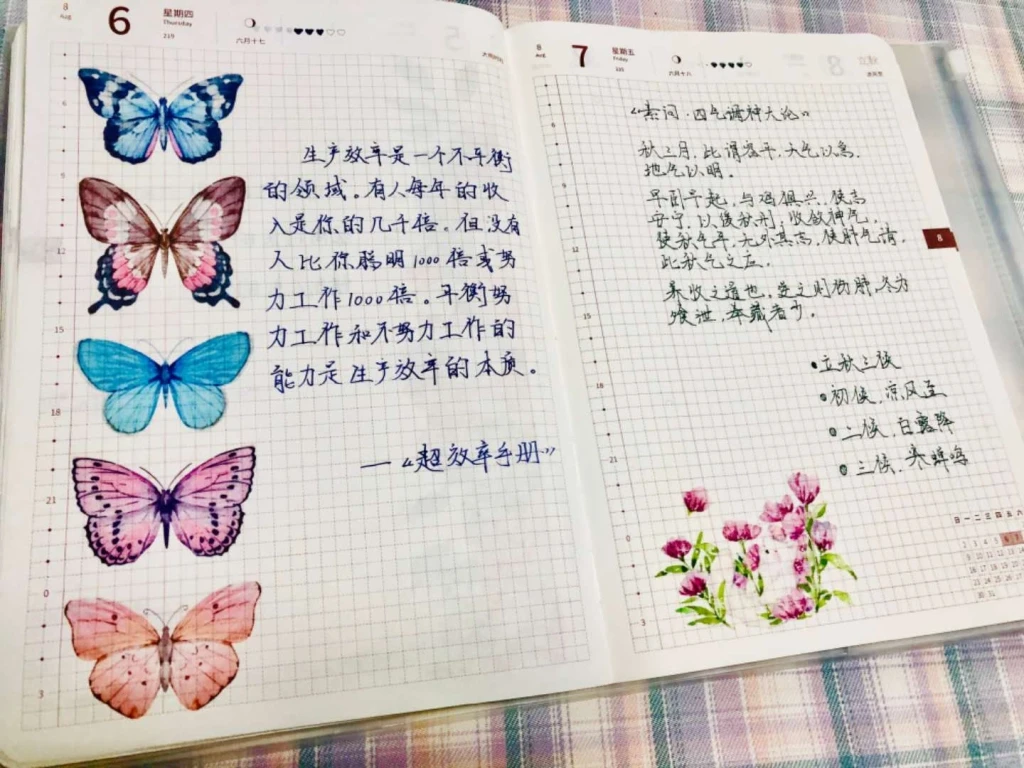 8
Aug
6
星期四
Thursday
219
六月十七
大雨时行
6
9
12
15
18
21
0
3
生产效率是一个不平衡
的领域。有人每年的收
入是你的几千倍。但没有
人比你聪明1000倍或努
力工作1000倍。平衡努
力工作和不努力工作的
能力是生产效率的本质。
——《超效率手册》
8
AUG
7
星期五
Friday
220
六月十八
6
9
12
15
18
21
0
3
8
《素问·四气调神大论》
秋三月,此谓容平,天气以急,
地气以明。
早卧早起,与鸡俱兴,使志
安宁,以缓秋刑,收敛神气,
使秋气平,无外其志,使肺气清,
此秋气之应,
养收之道也,逆之则伤肺,冬为
飧泄,奉藏者少。
•立秋三候
•初候,凉风至
•二候,白露降
•三候,寒蝉鸣
日 一 二 三 四 五 六
2 3 4 5 6 7
9 10 11 12 13 14
16 17 18 19 20 21
23 24 25 26 27 28
30 31